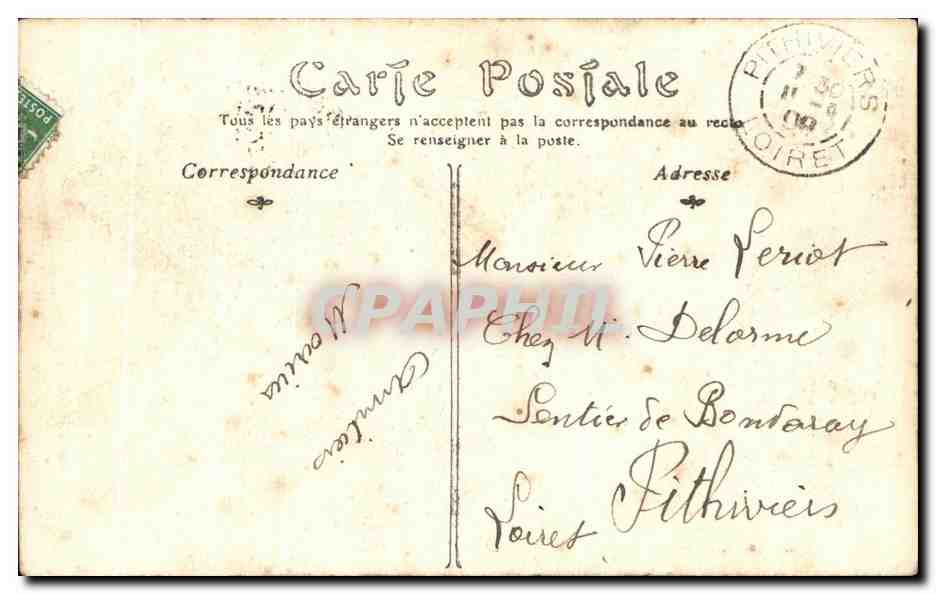 Carte Postale
Tous les pays étrangers n'acceptent pas la correspondance au recto
Se renseigner à la poste.
Correspondance
Adresse
POSTES
PITHIVIERS
7 30
11 - 4
09
LOIRET
Monsieur Pierre Leriot
Chez M. Delorme
Sentier de Bondaray
Pithiviers
Loiret
Amitiés
Marius
CPAPHIL